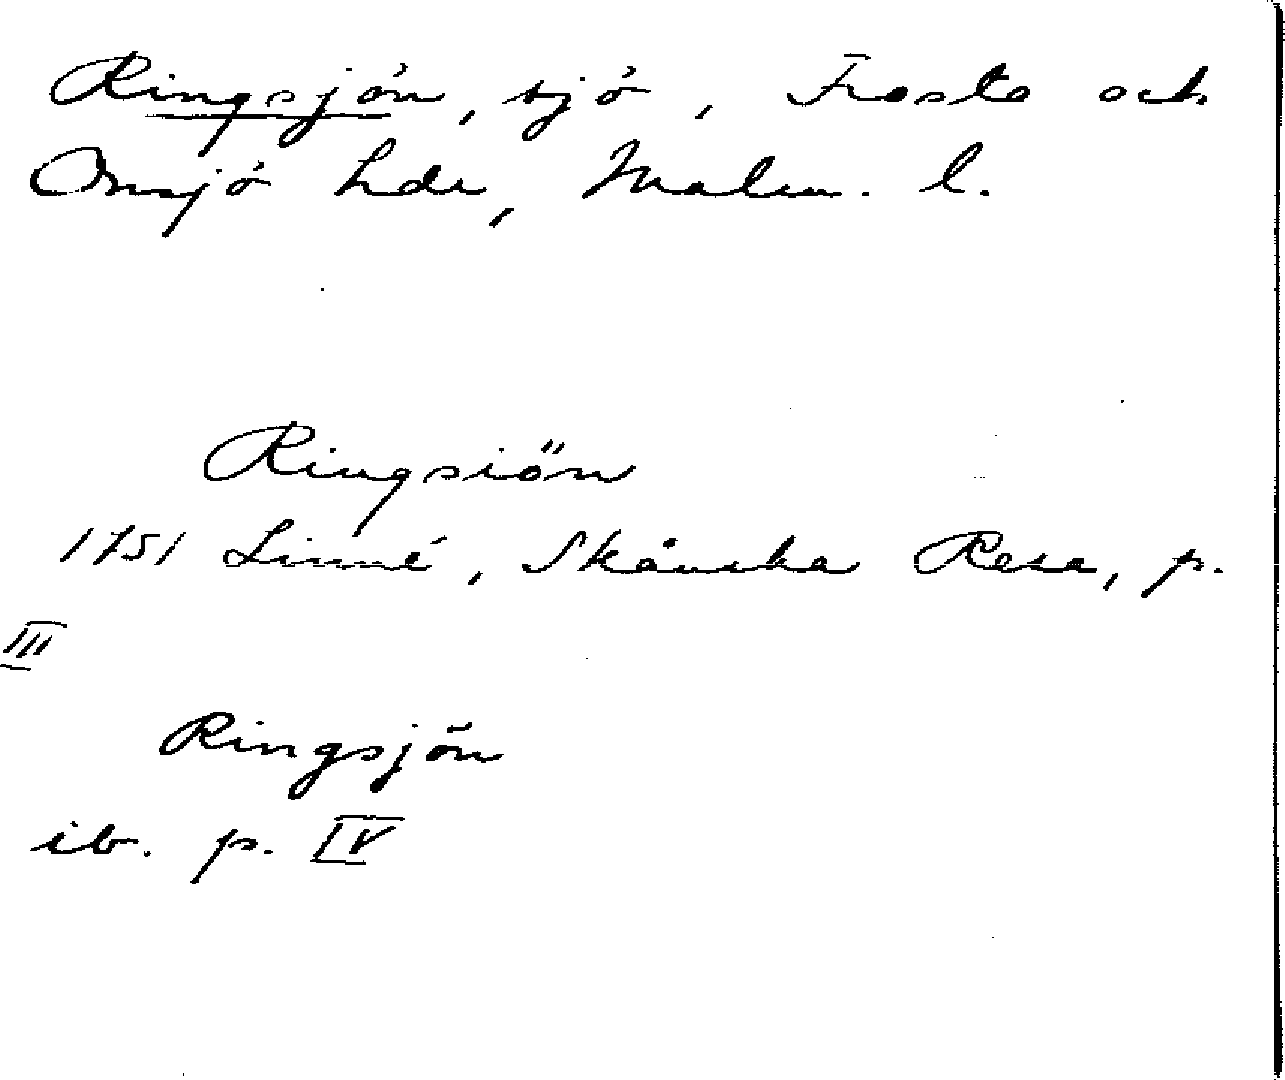 Ringsjön, sjö, Frosta och
Onsjö hdr, Malm. l.
Ringsiön
1751 Linné, Skånska Resa, p.
III
Ringsjön
ib. p. IV